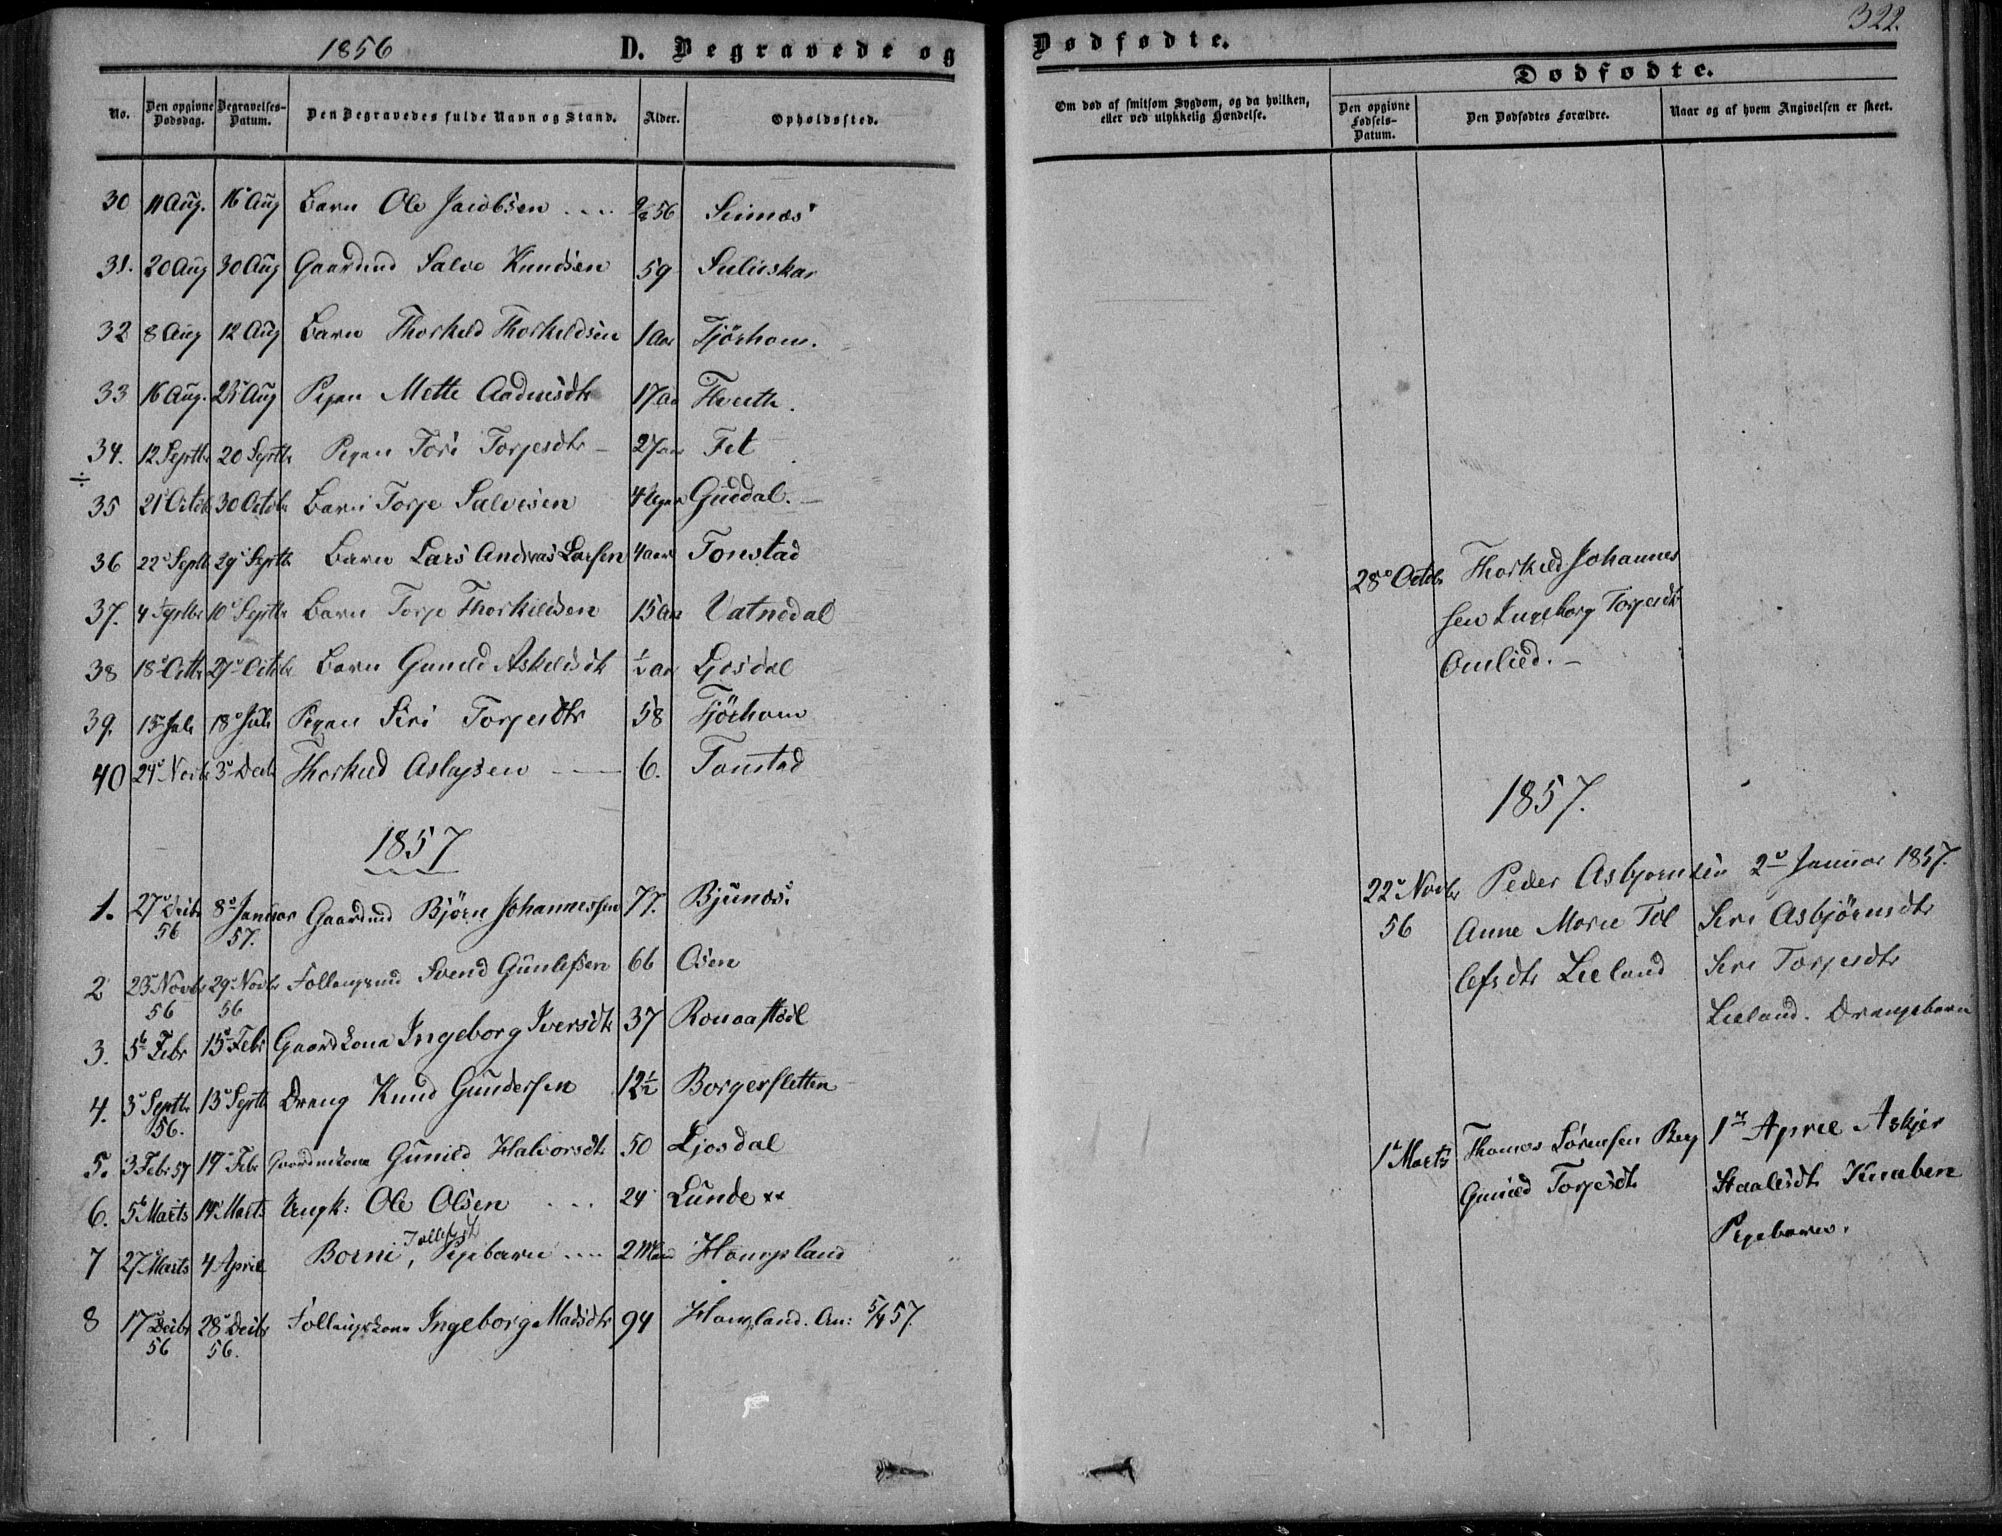 1856 D. Begravede og
No. Den opgivne Dødsdag. Begravelses-Datum. Den Begravedes fulde Navn og Stand. Alder. Opholdssted.
30 11 Aug. 16 Aug Barn Ole Jacobsen 56
31. 20 Aug 30 Aug Gaardmd Salve Knudsen 59 Suluskar
32 8 Aug 12 Aug Barn Thorkild Thorkildsen 1 Aar Tjørhom.
33 16 Aug. 25 Aug Pigen Mette 17 Aar
34. 12 Septbr 20 Septbr Pigen Tori Torjesdtr 27 aar Fet
÷
35 21 Octbr 30 Octbr Barn Torje Salvesen 4 Uger Guddal.
36 22 Septbr 29 Septbr Barn Lars Andreas Larsen 4 aar Tonstad
37. 4 Septbr 10 Septbr Barn Torje Thorkildsen 15 Aar Vatnedal
38 18 Octbr 27 Octbr Barn Gunild Askildsdtr ½ Aar Ljosdal
39. 15 Juli 18 Juli Pigen Siri Torjesdtr 58 Tjørhom
40 24 Novbr 3 Decbr Thorkild Aslagsen 6. Tonstad
1857
1. 27 Decbr 8 Januar Gaardmd Bjørn Johannessen 77. Bjunæs.
56 57.
2 23 Novbr 29 Novbr Svend Gunlefsen 66 Osen
56 56
3. 5 Febr 15 Febr Gaardkona Ingeborg Iversdtr 37
4. 3 Septbr 13 Septbr Dreng Knud Gundersen 12½ Borgersletten
56.
5. 3 Febr 57 19 Febr Gaardmkone Gunild Halvorsdtr 50 Ljosdal
6. 5 Marts 14 Marts Ungk: Ole Olsen 24 Lunde
7 27 Marts 4 April Borni, Pigebarn Hompland
8 17 Decbr 28 Decbr Ingeborg Madsdtr 94 Hompland. An: 5/4 57.
56 56.
Dødfødte. 322.
Dødfødte.
Om død af smitsom Sygdom, og da hvilken, eller ved ulykkelig Hændelse. Den opgivne Fødsels-Datum. Den Dødfødtes Forældre. Naar og af hvem Angivelsen er skeet.
28 Octbr Thorkild Johannes
sen Ingeborg Torjesdtr
Omlied.
1857.
22 Novbr Peder Asbjørnsen 2 Januar 1857.
56 Anne Marie Tol Siri Asbjørnsdtr
lefsdtr Lieland Siri Torjesdtr
Lieland. Drengebarn
1 Marts Thomas Sørensen 1 April Askjer
Gunild Torjesdtr Staalesdtr Knaben
Pigebarn.